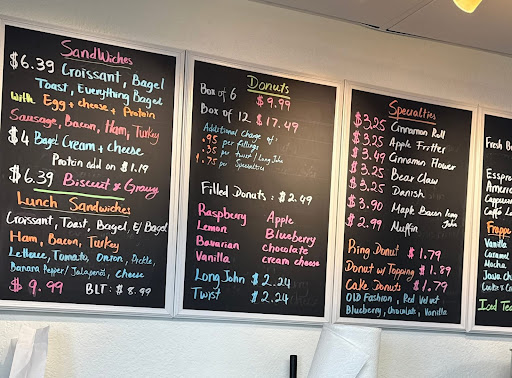 SandWiches
$6.39 Croissant, Bagel
Toast, Everything Bagel
with Egg + cheese + Protein
Sausage, Bacon, Ham, Turkey
$4 Bagel Cream + cheese
Protein add on $1.19
$6.39 Biscuit & Gravy
Lunch Sandwiches
Croissant, Toast, Bagel, E/Bagel
Ham, Bacon, Turkey
Lettuce, Tomato, Onion, Pickle,
Banana Pepper/Jalapeños, cheese
$9.99 BLT: $8.99
Donuts
Box of 6 $9.99
Box of 12 $17.49
Additional charge of:
.95 per fillings
.35 per twist/Long John
1.75 per Specialties
Filled Donuts: $2.49
Raspberry Apple
Lemon Blueberry
Bavarian chocolate
Vanilla cream cheese
Long John $2.24
Twist $2.24
Specialties
$3.25 Cinnamon Roll
$3.25 Apple Fritter
$3.49 Cinnamon Flower
$3.25 Bear Claw
$3.25 Danish
$3.90 Maple Bacon Long John
$2.99 Muffin
Ring Donut $1.79
Donut w/Topping $1.89
Cake Donuts $1.79
OLD Fashion, Red Velvet
Blueberry, Chocolate, Vanilla
Fresh B
Espre
America
Cappuccin
Caffé La
Frappe
Vanilla
Caramel
Mocha
Java Ch
Cookie & C
Iced Tea